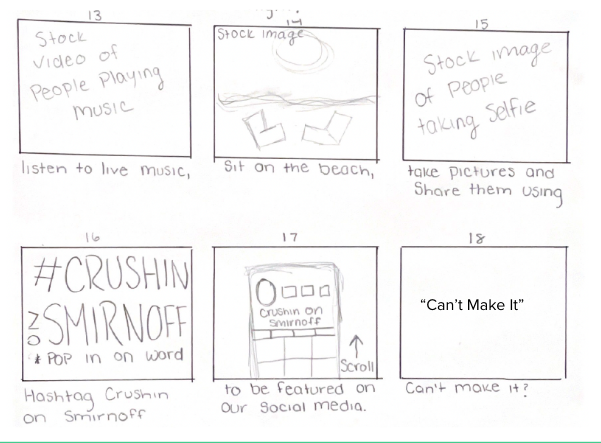 13
Stock
Video of
People Playing
music
listen to live music,
14
Stock image
Sit on the beach,
15
Stock image
of People
taking Selfie
take pictures and
Share them using
16
#CRUSHIN
ON SMIRNOFF
* POP in on word
Hashtag Crushin
on Smirnoff
17
Crushin on
Smirnoff
Scroll
to be featured on
our social media.
18
“Can’t Make It”
Can't make it?